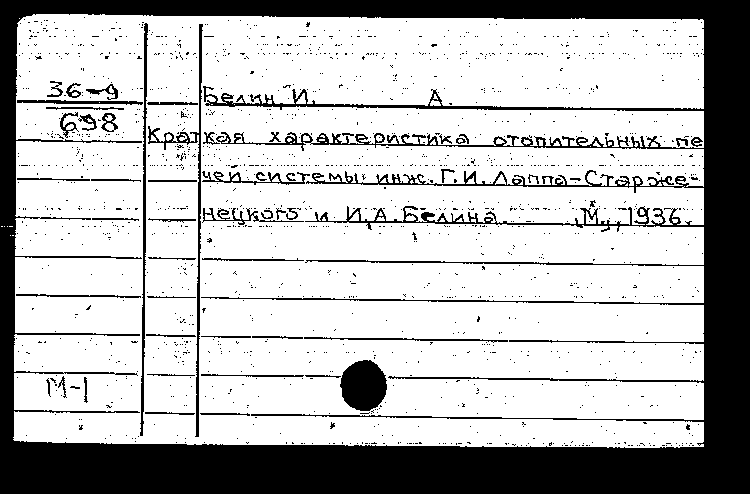 36-9
698
Белин, И. А.
Краткая характеристика отопительных пе
чей системы инж. Г.И. Лаппа-Стараже-
нецкого и И.А. Белина. М., 1936.
М-1